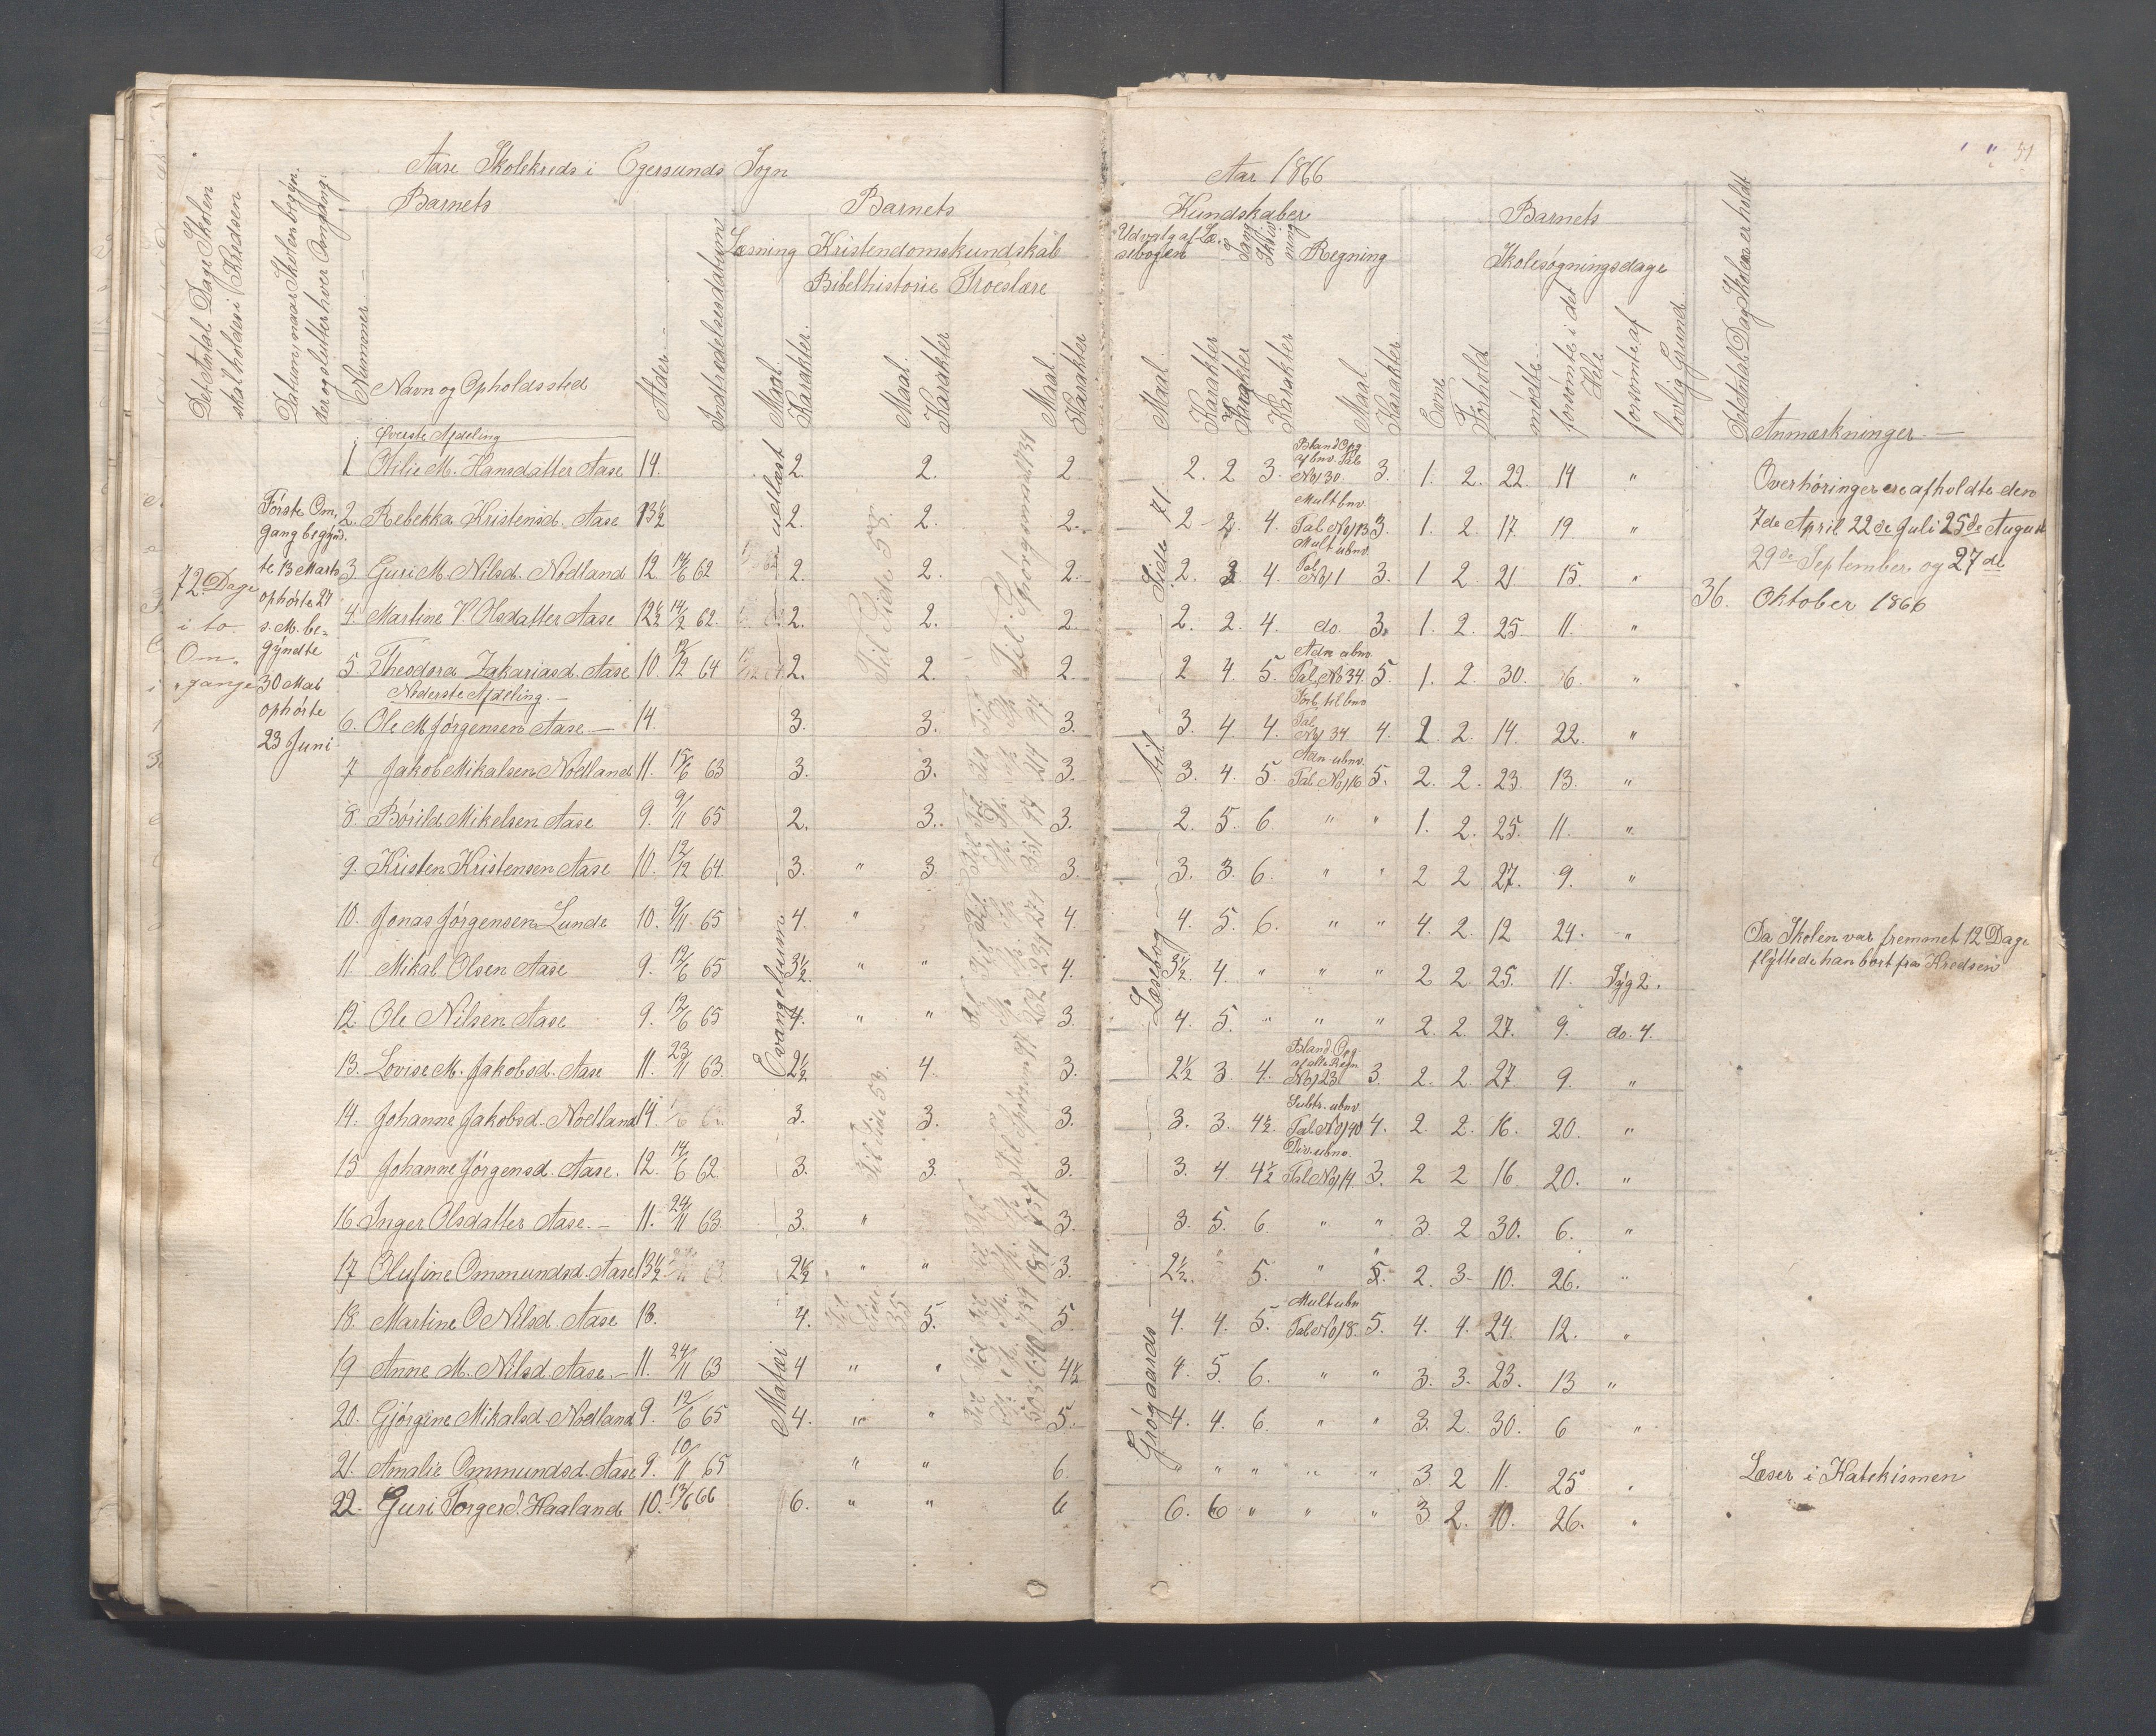 Aase Skolekreds i Egersunds Sogn
Aar 1866
51
Det Antal Dage Skolen skal holdes i Kredsen
Datum, naar Skolen begynder og slutter hver Omgang.
Nummer
Barnets
Navn og Opholdssted
Alder
Indtrædelsesdatum
Barnets
Læsning
Maal. Karakter.
Kristendomskundskab
Bibelhistorie Troeslære
Maal. Karakter
Maal Karakter
Kundskaber
Udvalg af Læsebogen
Maal. Karakter
Sang Karakter
Skrivning Karakter
Regning
Maal Karakter
Evne
Forhold
Barnets
Skolesøgningsdage
mødte
forsømte i det Hele
forsømte af lovlig Grund
Det Antal Dage Skolen er holdt
Anmærkninger
72 Dage
i to
Om-
gange
Første Om-
gang begynd-
te 13 Marts
ophørte 27
s. M. be-
gyndte
30 Mai
ophørte
23 Juni
Øverste Afdeling
1 Otilie M. Hansdatter Aase 14. 2. 2. 2 2. 2 3. Bland Opg. af bnv. Tal No 30. 3. 1. 2. 22. 14 "
2. Rebekka Kristensd. Aase 13½ 2. 2. 2. 2 2. 4. Mult bnv. Tal No 13 3. 1. 2 17. 19 "
3. Guri M. Nilsd. Nodland 12 14/6 62 2. 2. 2. 2. 3 4. Mult ubnv. Tal No 1 3. 1 2 21 15. "
4. Martine V. Olsdatter Aase 12½ 14/2 62. 2. 2. 2 2. 2. 4. do. 3. 1. 2. 25. 11. "
5. Theodora Zakariasd. Aase 10. 12/12 64 2. 2. 2. 2 4. 5. Adn ubnv. Tal No 34. 5. 1. 2. 30. 6. "
Nederste Afdeling.
6. Ole M Jørgensen Aase 14. 3. 3. 3. 3. 4. 4. Forb. til bnv Tal No 34 4. 2. 2. 14. 22. "
7 Jakob Mikalsen Nodland 11. 15/6 63 3. 3. 3. 3. 4. 5. Adn ubnv. Tal No 16 5. 2. 2. 23. 13. "
8. Børild Mikelsen Aase 9. 9/11 65 2. 3. 3. 2. 5. 6. " " 1. 2. 25. 11. "
9. Kristen Kristensen Aase 10. 12/12 64. 3. " 3. 3. 3. 3. 6. " " 2 2 27. 9. "
10. Jonas Jørgensen Lunde 10. 9/11 65 4. " 4. 4. 5. 6. " " 4. 2. 12 24. "
11. Mikal Olsen Aase 9. 12/6 65 3½ " " 4. 3½ 4. " " " 2 2. 25. 11. Syg 2.
12 Ole Nilsen Aase 9. 12/6 65 4. " " 3. 4. 5. " " " 2. 2. 27. 9. do. 4.
13. Lovise M. Jakobsd. Aase 11. 23/11 63. 2½ 4. 3. 2½ 3. 4. Bland. Opg. af alle Regn No 23 3. 2. 2. 27 9. "
14. Johanne Jakobsd. Nodland 14. 3. 3. 3. 3. 3. 4½ Subtr. ubnv. Tal No 40 4. 2. 2. 16. 20. "
15 Johanne Jørgensd. Aase. 12. 14/6 62. 3. 3. 3. 3. 4. 4½ Div. ubnv. Tal No 14. 3. 2 2 16. 20. "
16 Inger Olsdatter Aase. 11. 24/11 63. 3. " 3. 3. 5. 6. " " 3. 2 30. 6. "
17 Olufine Ommundsd. Aase 13½ 2½ " " 3. 2½. " 5. " 5. 2. 3. 10. 26. "
18. Martine O Nilsd. Aase 13. 4. 5. 5. 4. 4. 5. Mult ubn Tal No 8. 5. 4. 4. 24. 12. "
19 Anne M. Nilsd. Aase. 11. 24/11 63 4 " " 4½ 4. 5. 6. " " 3. 3. 23. 13 "
20. Gjørgine Mikalsd. Nodland 9. 12/6 65 4. " " 5. 4. 4. 6. " " 3. 2. 30. 6 "
21. Amalie Ommundsd. Aase 9. 10/11 65 " " 6. " " " " " 3. 2 11. 25. "
22. Guri Torgerd. Haaland 10. 13/6 66 6. " " 6 6. 6 " " " 3. 2. 10. 26. "
udlæst
Evangelium
Matær
Til Side 58.
Til Spørgsmaal 734
Til Side 53.
Til Side 35
Grøgaards Læsebog til Side 71.
36.
Overhøringer ere afholdte den
7de April 22de Juli 25de August
29de September og 27de
Oktober 1866
Da Skolen var fremmet 12 Dage
flyttede han bort fra Kredsen
Læser i Katekismen